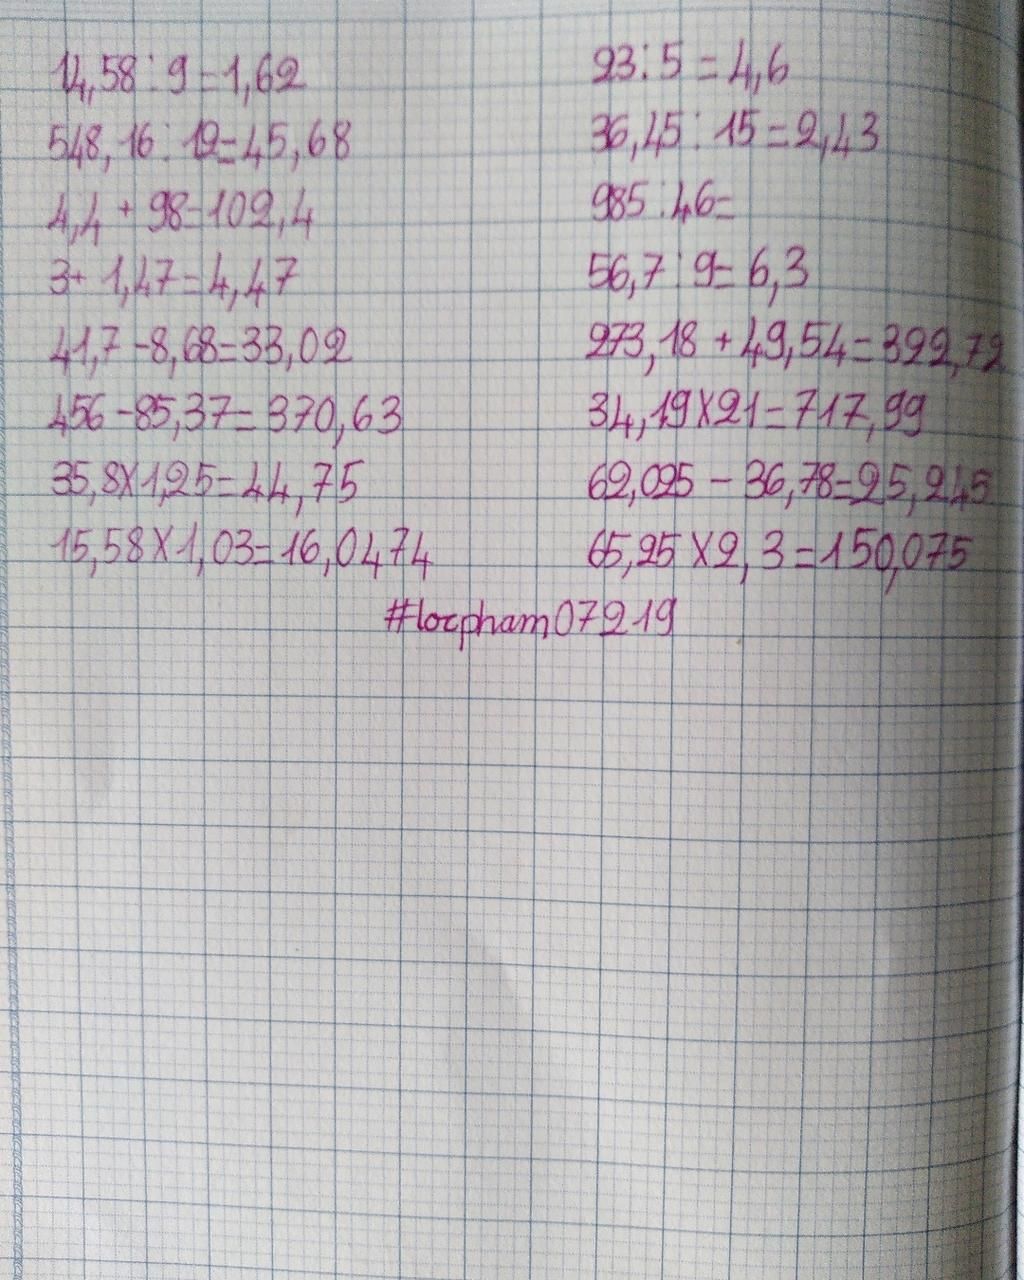 14,58 : 9 = 1,62
548,16 : 12 = 45,68
4,4 + 98 = 102,4
3 + 1,47 = 4,47
41,7 - 8,68 = 33,02
456 - 85,37 = 370,63
35,8 X 1,25 = 44,75
15,58 X 1,03 = 16,0474
23 : 5 = 4,6
36,45 : 15 = 2,43
985 : 46 =
56,7 : 9 = 6,3
273,18 + 49,54 = 322,72
34,19 X 21 = 717,99
62,025 - 36,78 = 25,245
65,25 X 2,3 = 150,075
#locpham07219